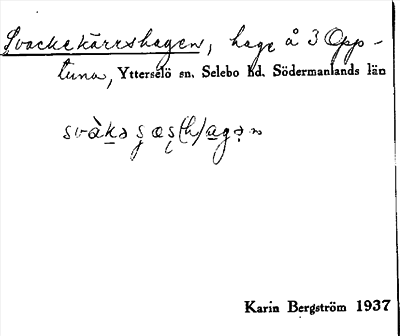 Svackekärrshagen, hage å 3 Opp-
tuna, Ytterselö sn, Selebo hd, Södermanlands län
Karin Bergström 1937